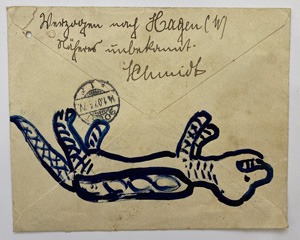 Verzogen nach Hagen (W)
Näheres unbekannt.
Schmidt